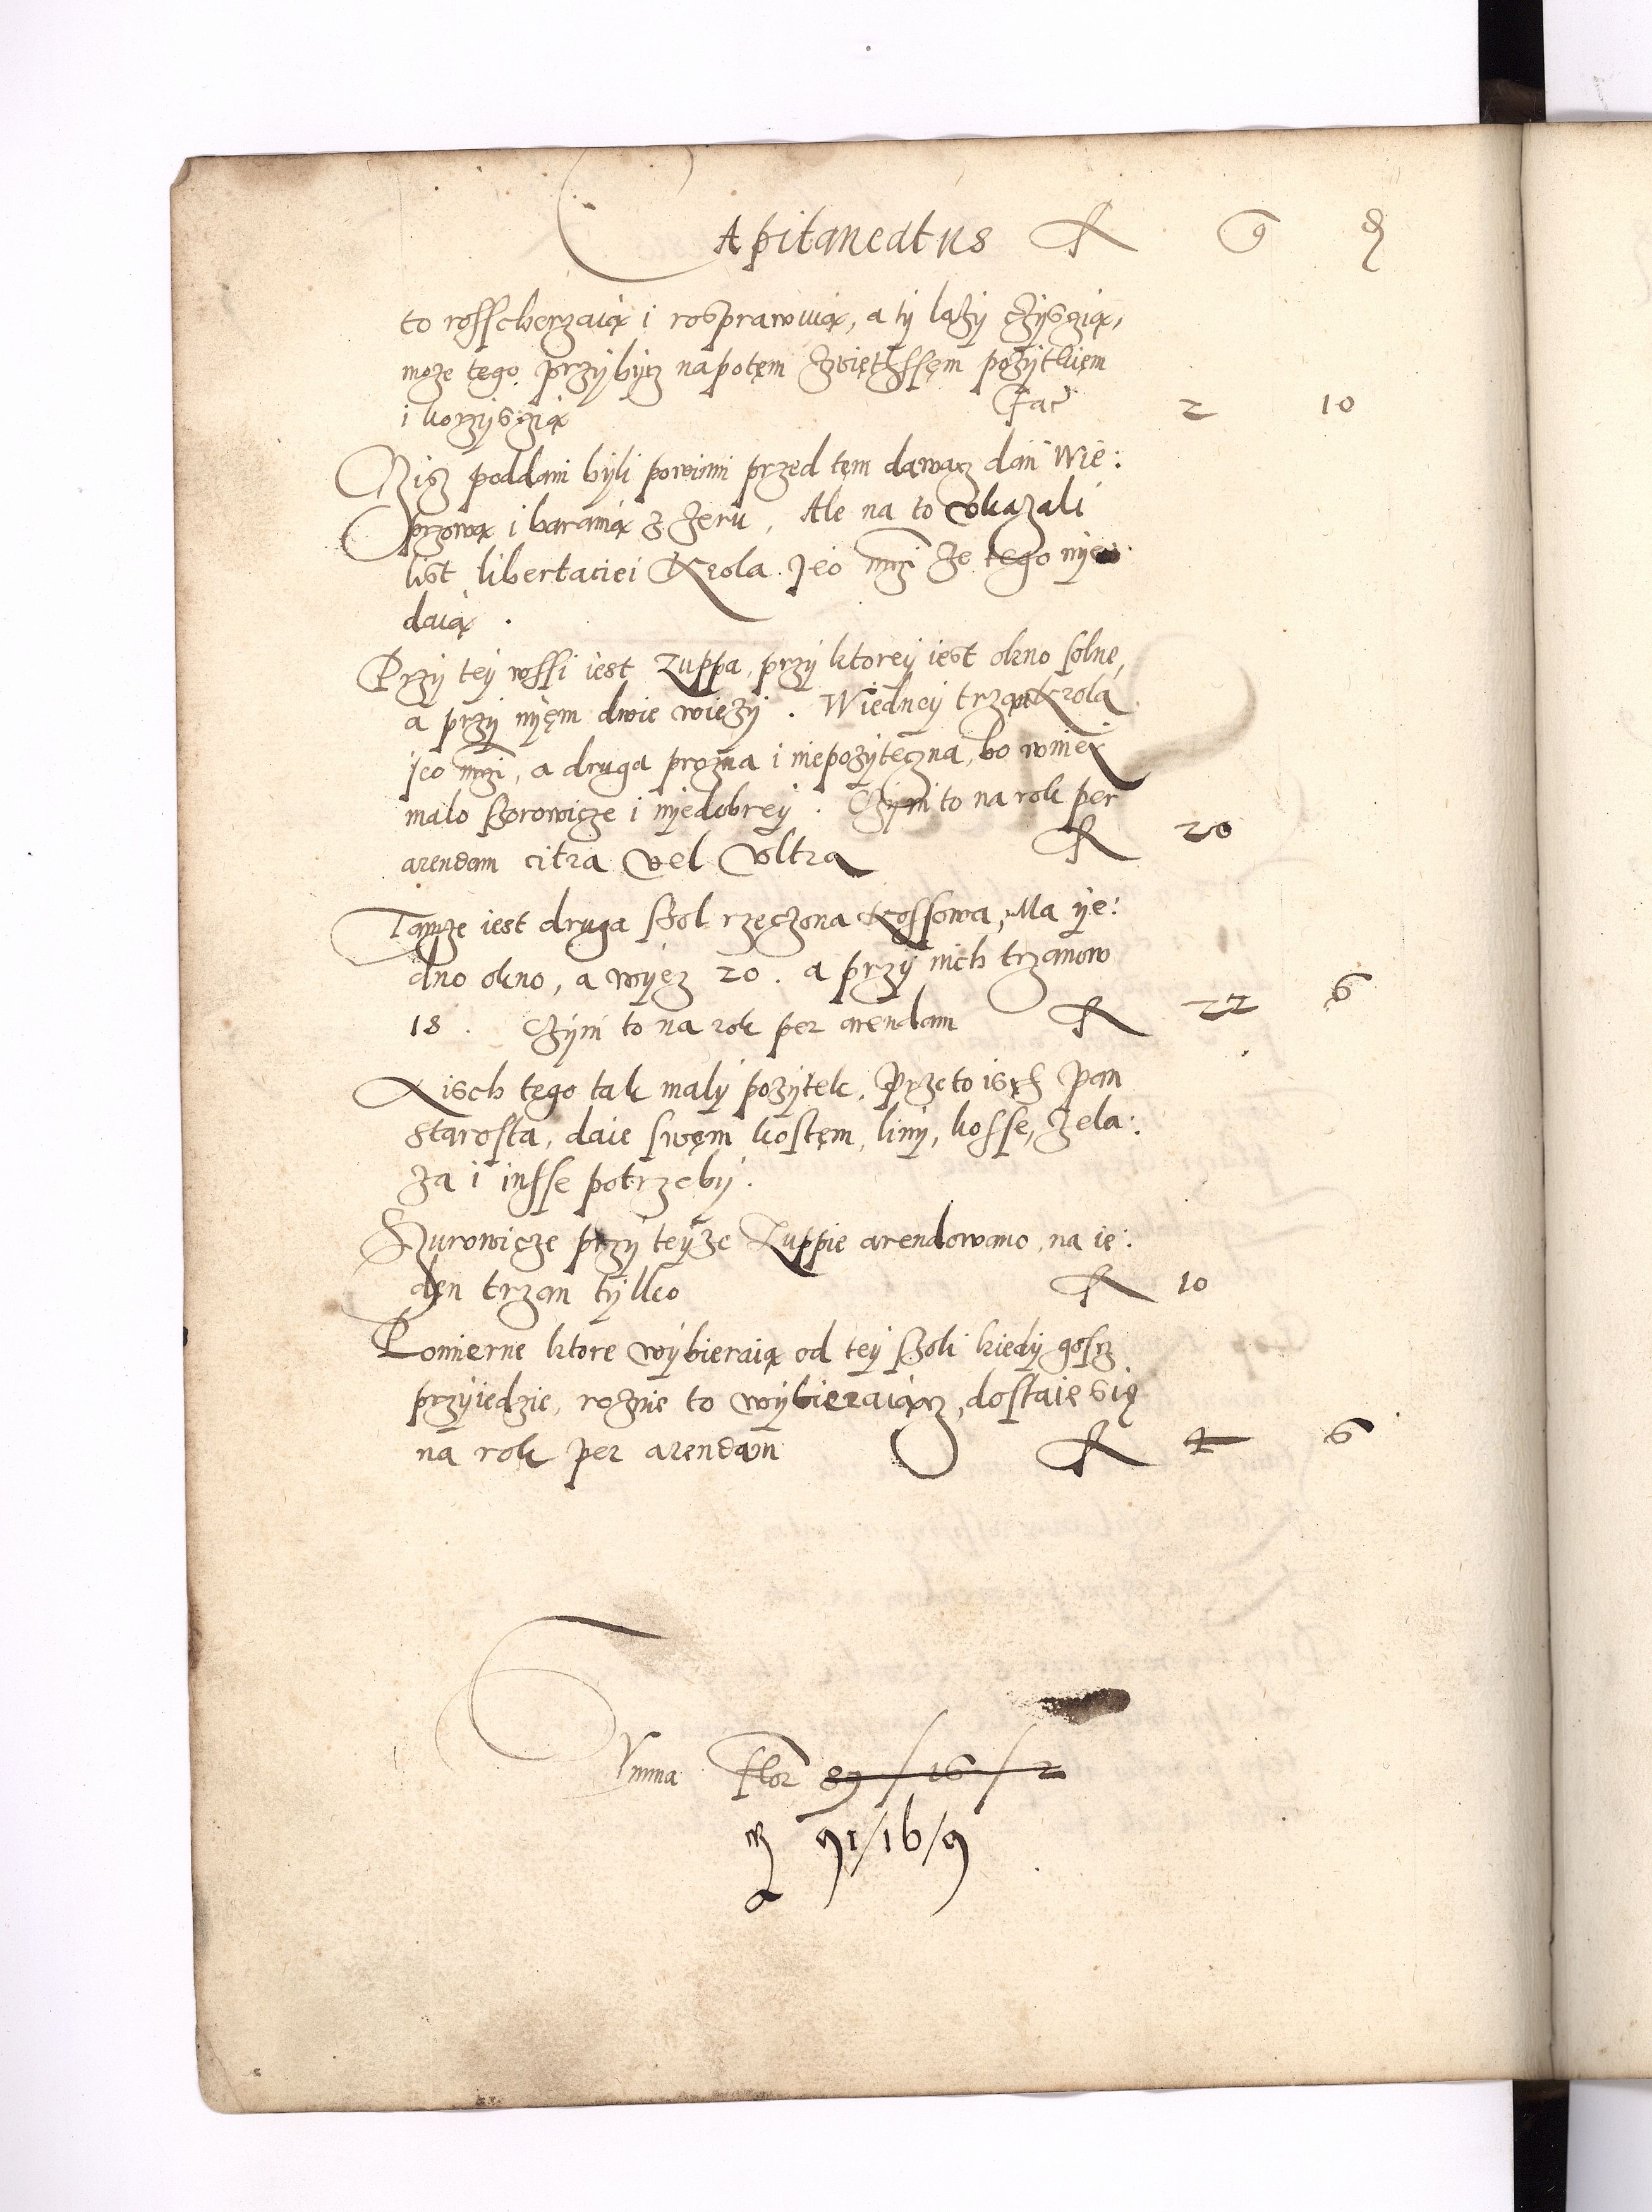 Capitaneatus fl g d
to rosscherzaią i rosprawuią, a ty lazy czysczią,
moze tego przybycz napotęm zwiętssęm pozytkięm
i korzysczią Fac 2 10
Czisz poddani byli powinni przed tęm dawacz dań Wie:
przową i baranią z zeru, Ale na to vkazali
list libertaciei Krola Jeo mczi ze tego nye
daią.
Przy tey wssi iest Zuppa, przy ktorey iest okno solne,
a przy nyęm dwie wiezy. Wiedney trząn Krola
jeo mczi, a druga prozna i niepozyteczna, bo wniey
malo szorowicze i nyedobrey. Czyni to na rok per
arendam citra vel vltra fl 20
Tamze iest druga szol rzeczona Kossowa, Ma ye:
dno okno, a wyęz 20. a przy nich trzanow
18. Czyni to na rok per arendam fl 22 6
Aisch tego tak maly pozytek, Przeto isch Pan
Starosta, daie swęm kostęm, liny, kosse, zela:
za i insse potrzeby.
Surowicze przy teyze Zuppie arendowano, na ie:
den trzan tylko fl 10
Pomierne ktore wybieraią od tey szoli kiedy gosz
przyiedzie, roznie to wybieraiącz, dostaie się
na rok per arendam fl 4 6
Summa Flor 89/16/2
91/16/9